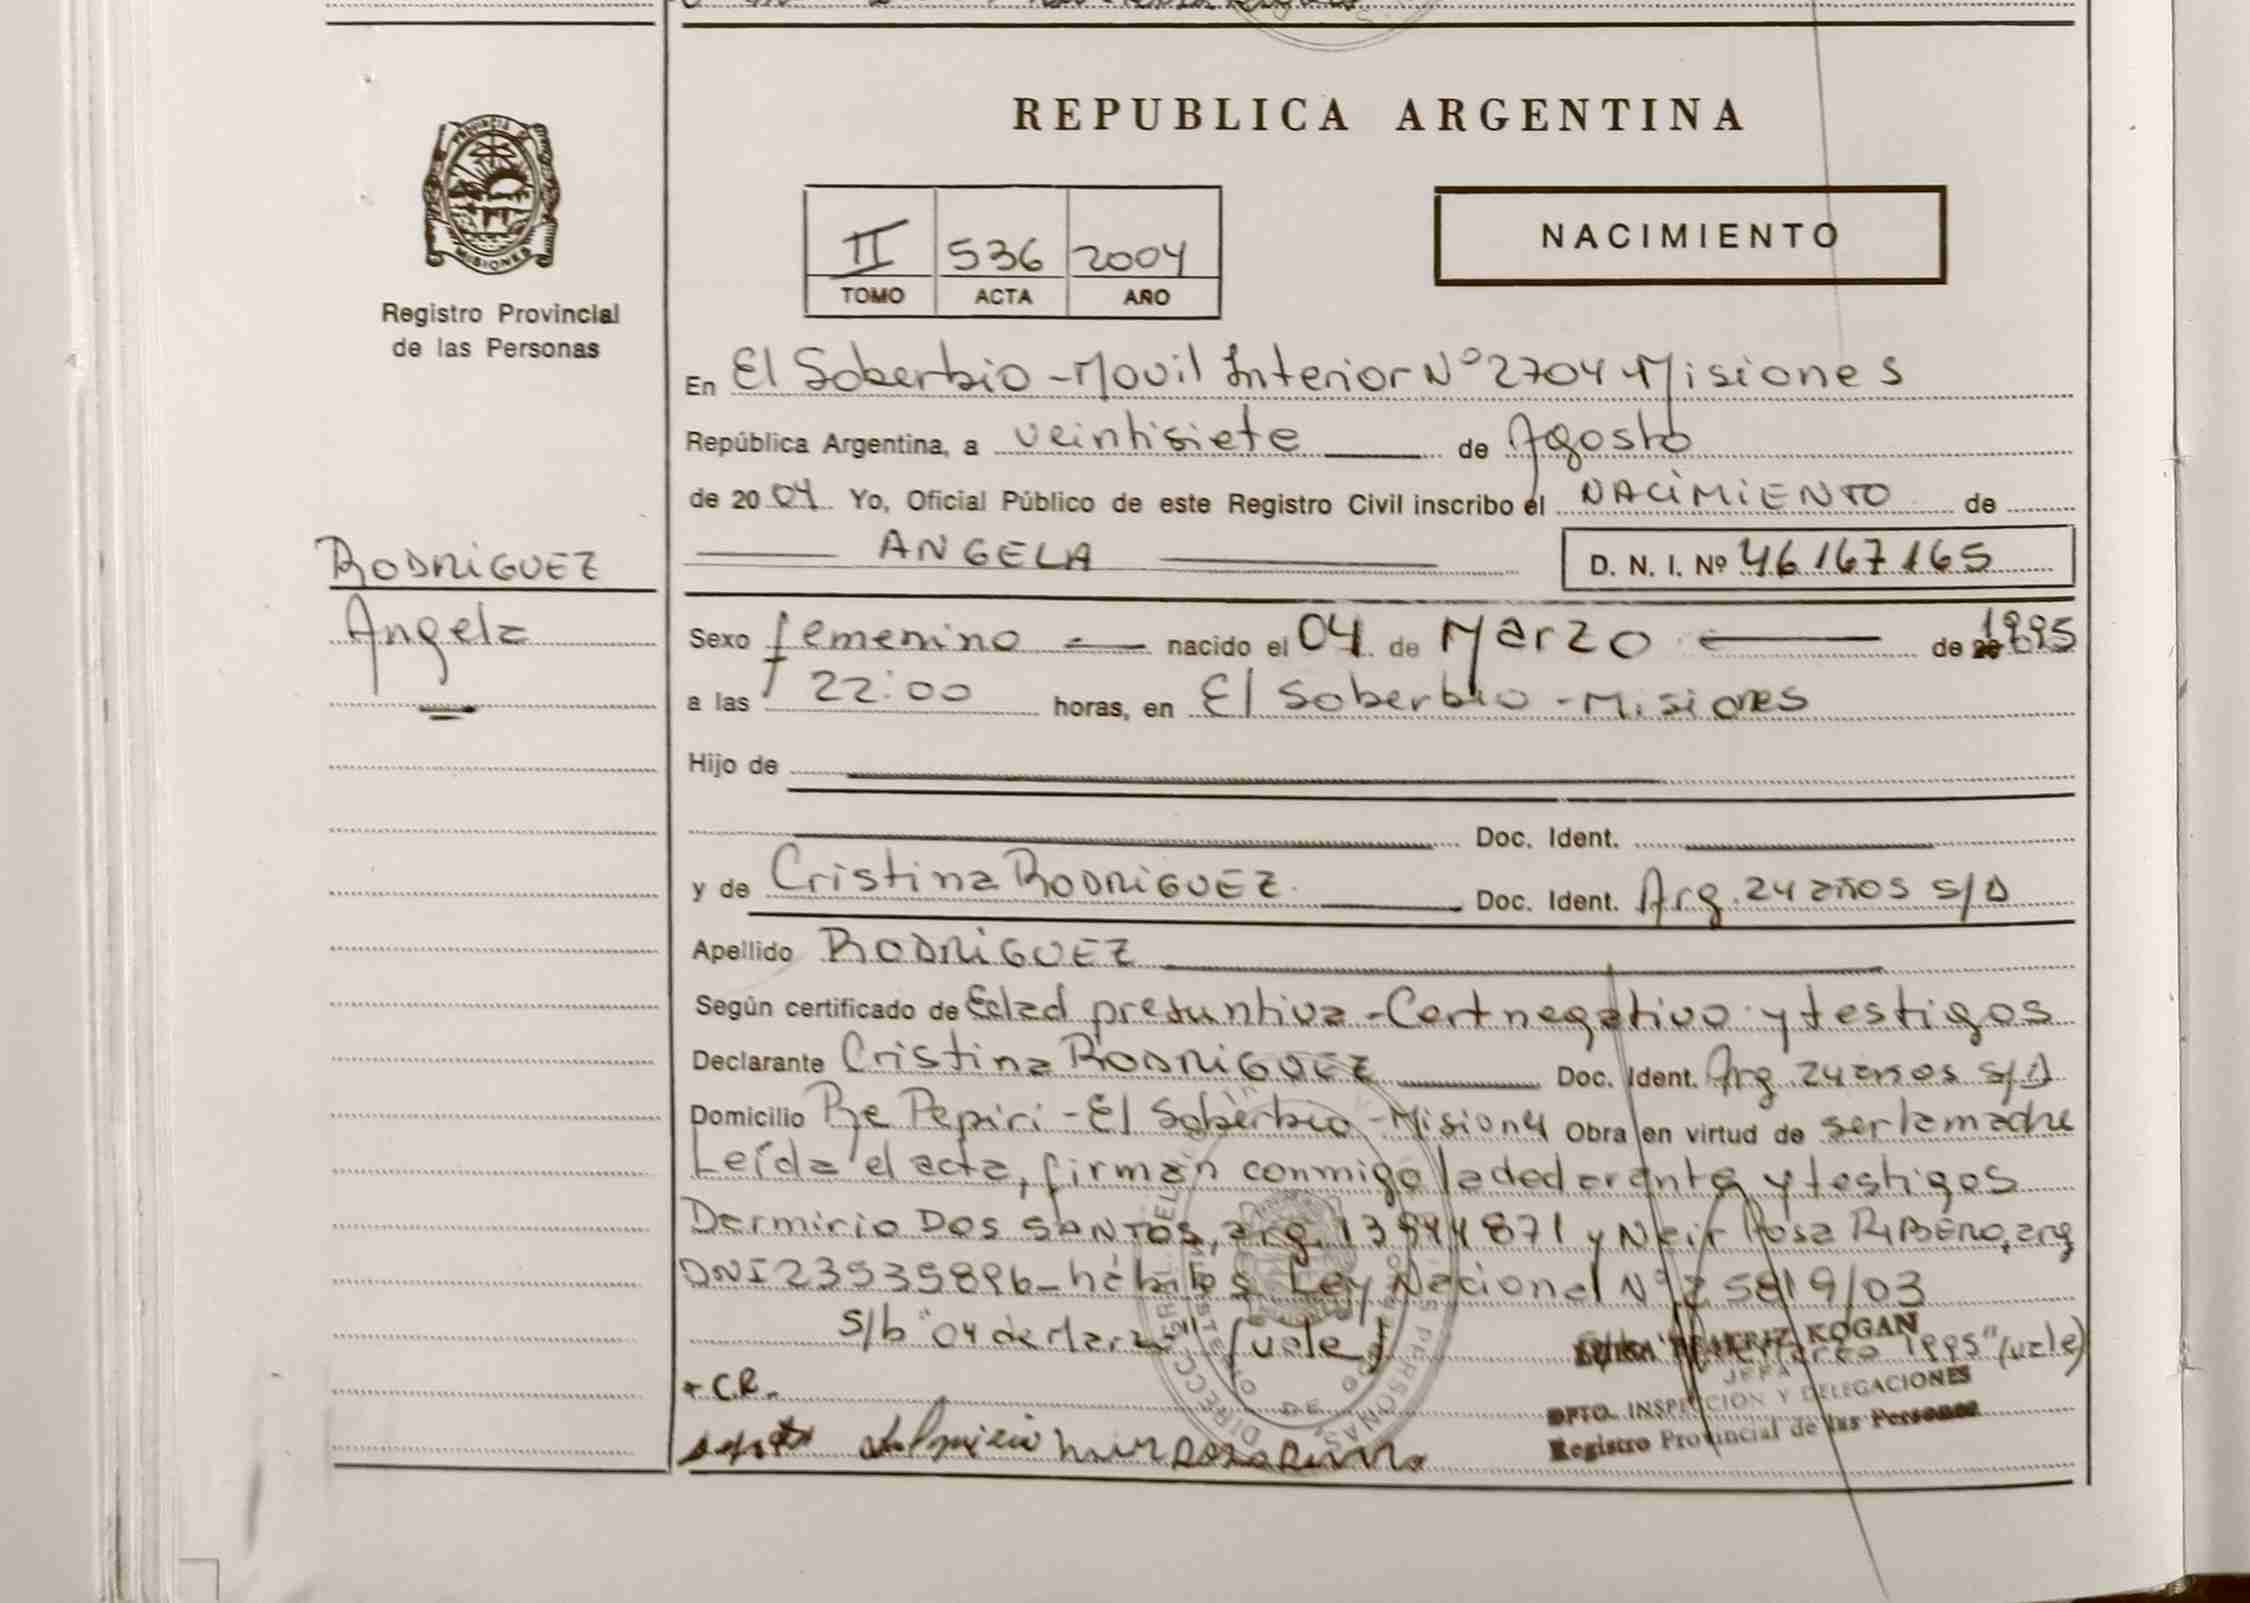 REPUBLICA ARGENTINA
PROVINCIA D
MISIONES
Registro Provincial
de las Personas
II 536 2004
TOMO ACTA AÑO
NACIMIENTO
En El Soberbio - Movil Interior Nº 2704 Misiones
República Argentina, a veintisiete de Agosto
de 2004 Yo, Oficial Público de este Registro Civil inscribo el NACIMIENTO de
ANGELA D. N. I. Nº 46167165
RODRIGUEZ
Angela
Sexo femenino nacido el 04 de Marzo de 1995
a las 22:00 horas, en El Soberbio - Misiones
Hijo de
Doc. Ident.
y de Cristina RODRIGUEZ Doc. Ident. Arg. 24 años s/D
Apellido RODRIGUEZ
Según certificado de Edad presuntiva - Cert negativo y testigos
Declarante Cristina RODRIGUEZ Doc. Ident. Arg 24 años s/D
Domicilio Pje Pepiri - El Soberbio - Misiones Obra en virtud de ser la madre
Leída el acta, firman conmigo la declarante y testigos
Dermirio DOS SANTOS, arg. y Neir Rosa RIBERO, arg
DNI 23535896 - hábiles Ley Nacional Nº 25819/03
S/b "04 de Marzo" (vale) 1995" (vale)
BEATRIZ KOGAN
JEFA
+ C.R.
DPTO. INSPECCION Y DELEGACIONES
Registro Provincial de las Personas